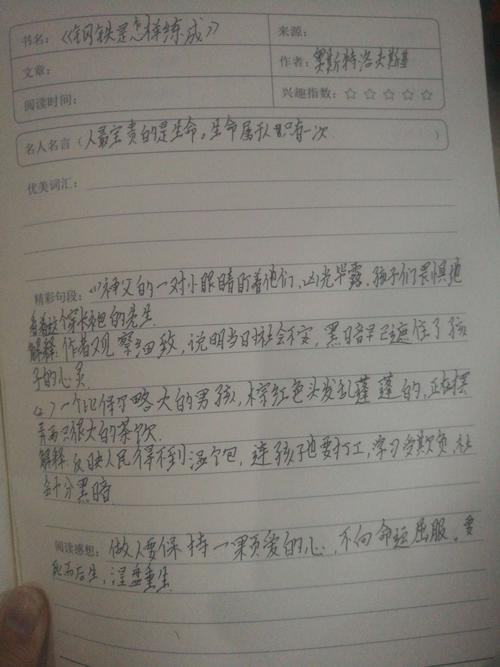 书名：《钢铁是怎样练成》
来源：
文章：
作者：奥斯特洛夫斯基
阅读时间：
兴趣指数：☆ ☆ ☆ ☆ ☆
名人名言（人最宝贵的是生命。生命属于人只有一次 ）
优美词汇：
精彩句段：(1)神父的一对小眼睛盯着他们，凶光毕露，孩子们畏惧地
看着这个穿长袍的先生
解释：作者观察细致，说明当日社会不安，黑暗早已遮住了孩
子的心灵
(2)一个比保尔略大的男孩，棕红色头发乱蓬蓬的，正在摆
弄两只很大的茶炊
解释 反映人民得不到温饱，连孩子也要打工，学习多欺负 社
会十分黑暗
阅读感想：做人要保持一颗爱的心，不向命运屈服。要
死而后生，涅盘重生